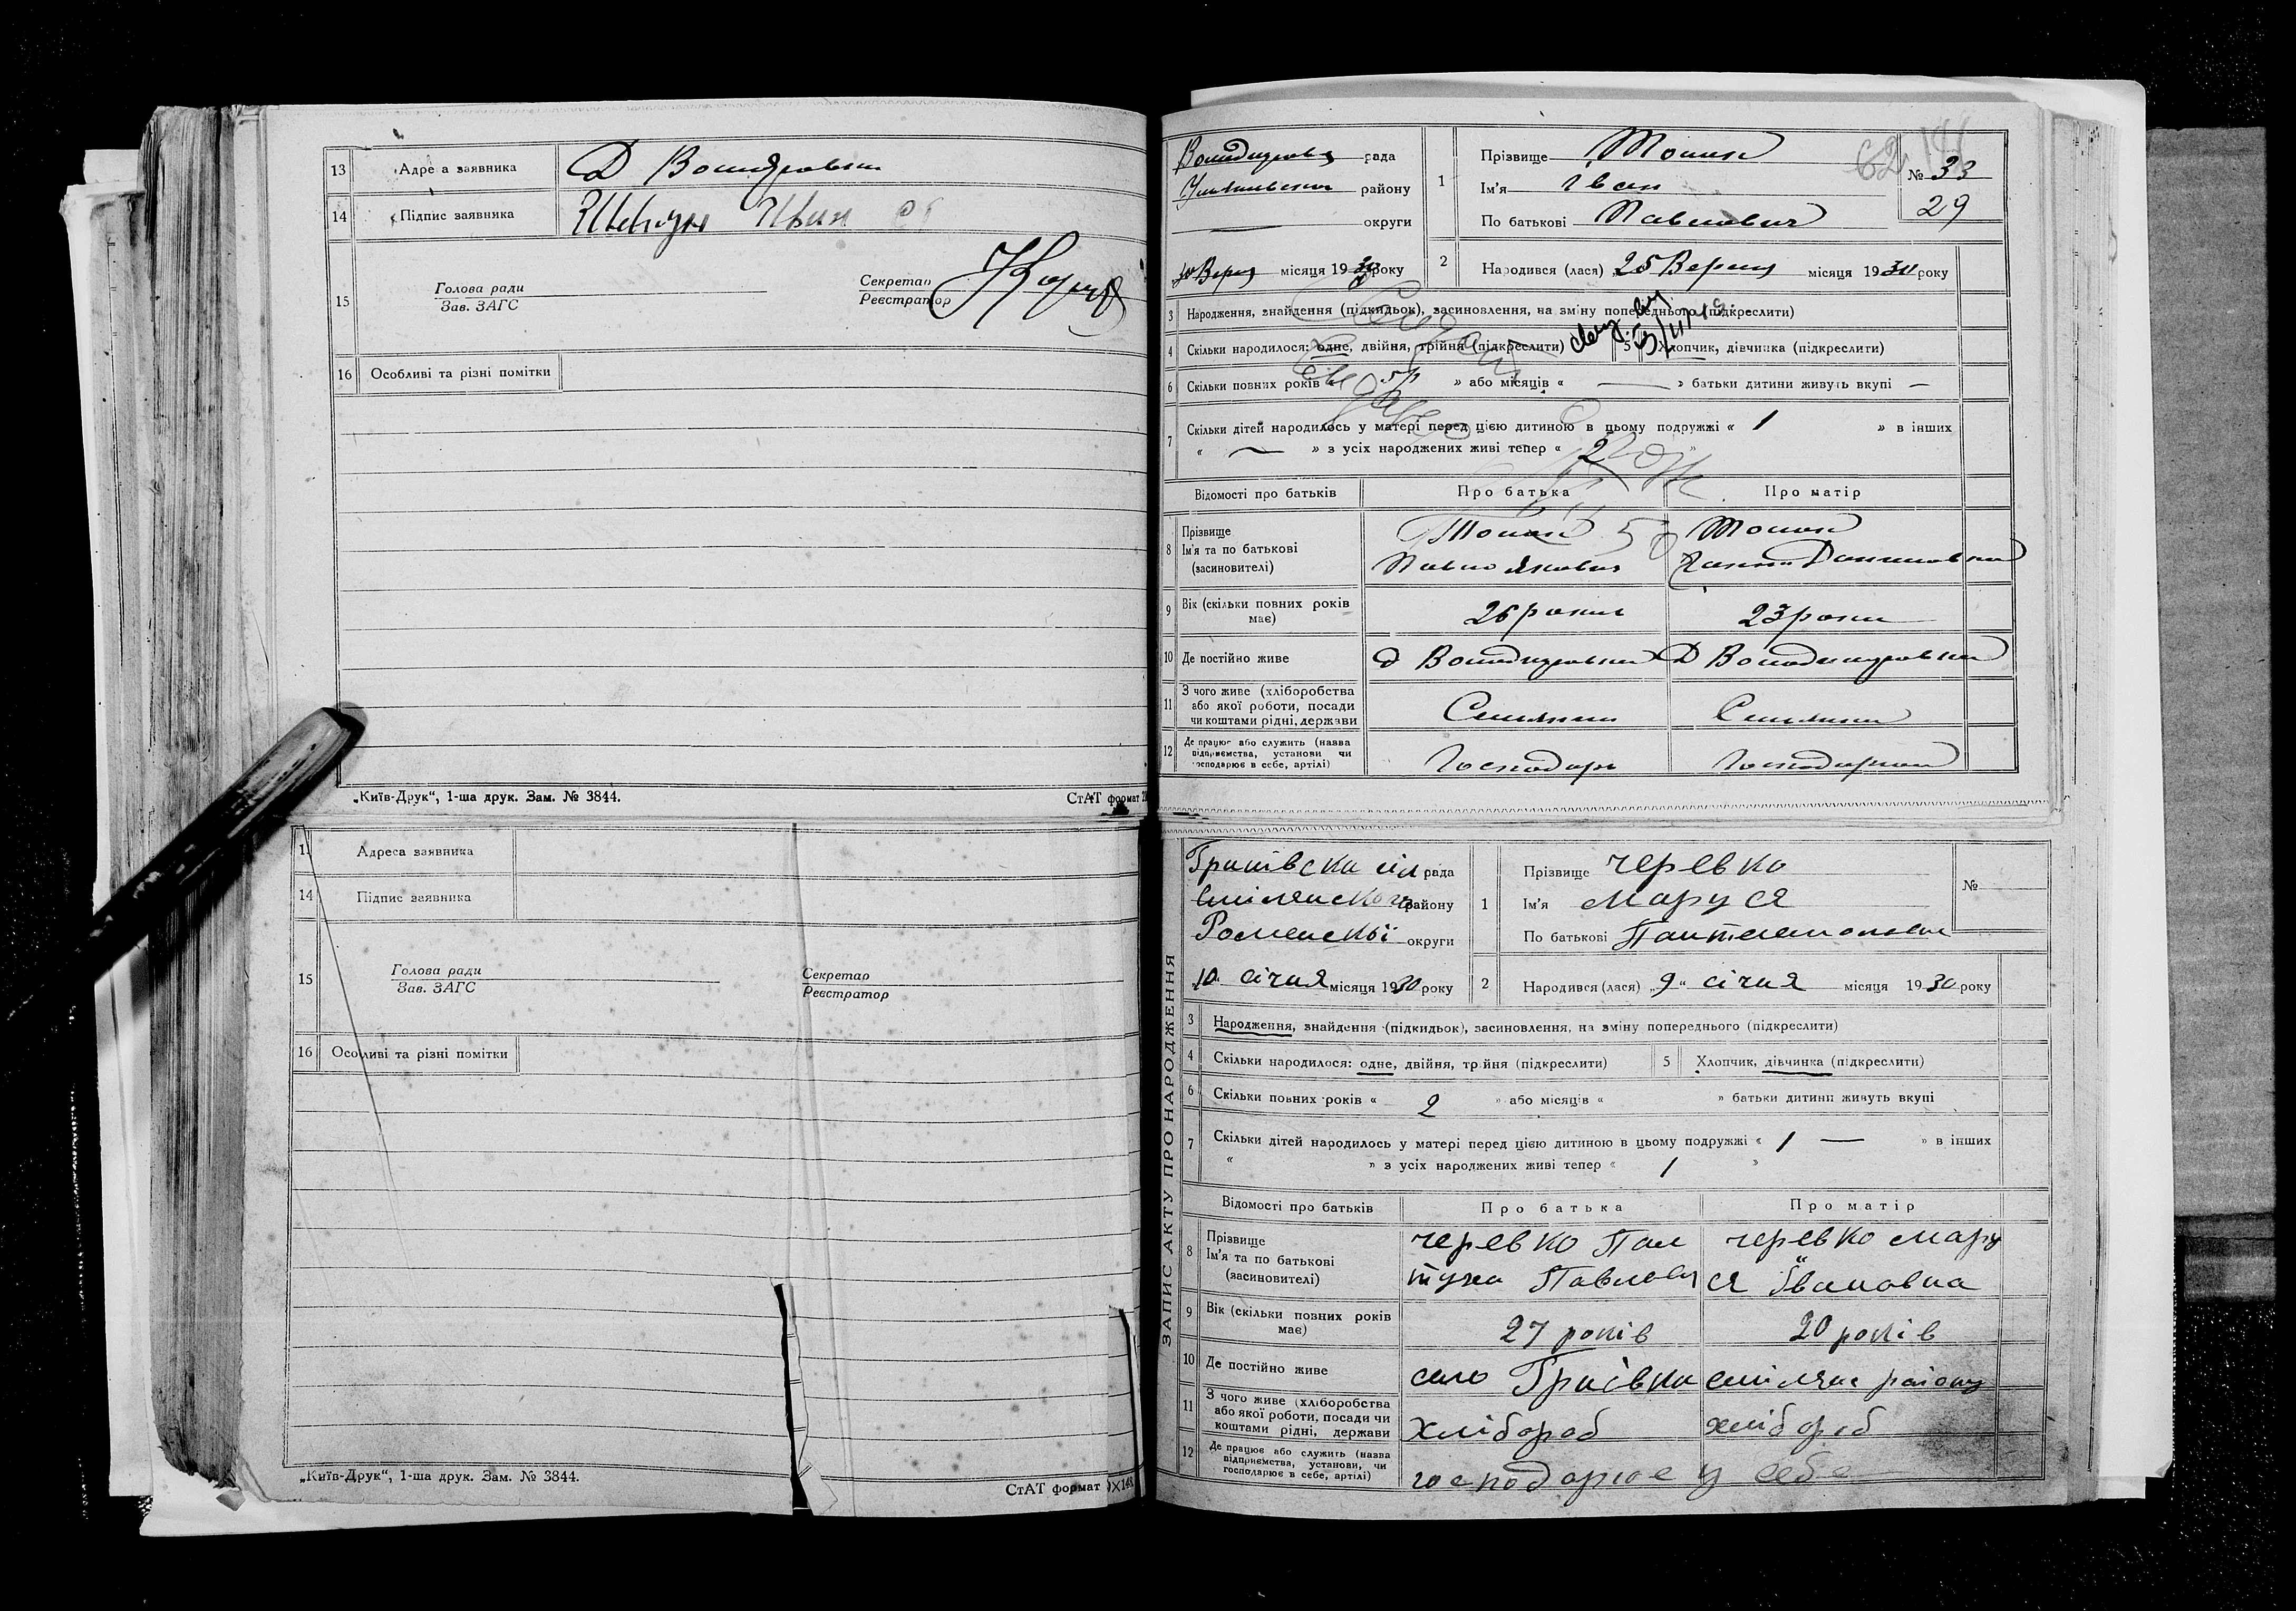 13 Адреса заявника Д
14 Підпис заявника Іван
15 Голова ради
Зав. ЗАГС
Секретар
Реєстратор
16 Особливі та різні помітки
„Київ-Друк“, 1-ша друк. Зам. № 3844.
СтАТ формат
рада
району
округи
місяця 1930 року
1 Прізвище
Ім'я Іван
По батькові Павлович
№ 33
29
2 Народився (лася) 25 Вересня місяця 1930 року
3 Народження, знайдення (підкидьок), засиновлення, на зміну попереднього (підкреслити)
4 Скільки народилося: одне, двійня, трійня (підкреслити) 5 Хлопчик, дівчинка (підкреслити)
6 Скільки повних років « » або місяців « — » батьки дитини живуть вкупі —
7 Скільки дітей народилось у матері перед цією дитиною в цьому подружжі « 1 » в інших
« — » з усіх народжених живі тепер « 2
Відомості про батьків Про батька Про матір
8 Прізвище
Ім'я та по батькові Павло Якович
(засиновителі)
9 Вік (скільки повних років має) 26 роки 23 роки
10 Де постійно живе д Володимировка Д Володимировка
11 З чого живе (хліборобства
або якої роботи, посади
чи коштами рідні, держави Селянин Селянка
12 Де працює або служить (назва
підприємства, установи чи
господарює в себе, артілі) Господарь Господарка
13 Адреса заявника
14 Підпис заявника
15 Голова ради
Зав. ЗАГС
Секретар
Реєстратор
16 Особливі та різні помітки
„Київ-Друк“, 1-ша друк. Зам. № 3844.
СтАТ формат
ЗАПИС АКТУ ПРО НАРОДЖЕННЯ
сіл рада
Смілянского району
Роменскої округи
10 січня місяця 1930 року
1 Прізвище Черевко
Ім'я Маруся
По батькові
№
2 Народився (лася) „9“ січня місяця 1930 року
3 Народження, знайдення (підкидьок), засиновлення, на зміну попереднього (підкреслити)
4 Скільки народилося: одне, двійня, трійня (підкреслити) 5 Хлопчик, дівчинка (підкреслити)
6 Скільки повних років « 2 » або місяців « » батьки дитини живуть вкупі
7 Скільки дітей народилось у матері перед цією дитиною в цьому подружжі « 1 — » в інших
« » з усіх народжених живі тепер « 1 »
Відомості про батьків Про батька Про матір
8 Прізвище Черевко Черевко Мару
Ім'я та по батькові Павлович ся Івановна
(засиновителі)
9 Вік (скільки повних років має) 27 років 20 років
10 Де постійно живе село смілян району
11 З чого живе (хліборобства
або якої роботи, посади чи
коштами рідні, держави хлібороб хлібороб
12 Де працює або служить (назва
підприємства, установи, чи
господарює в себе, артілі) господарює у себе